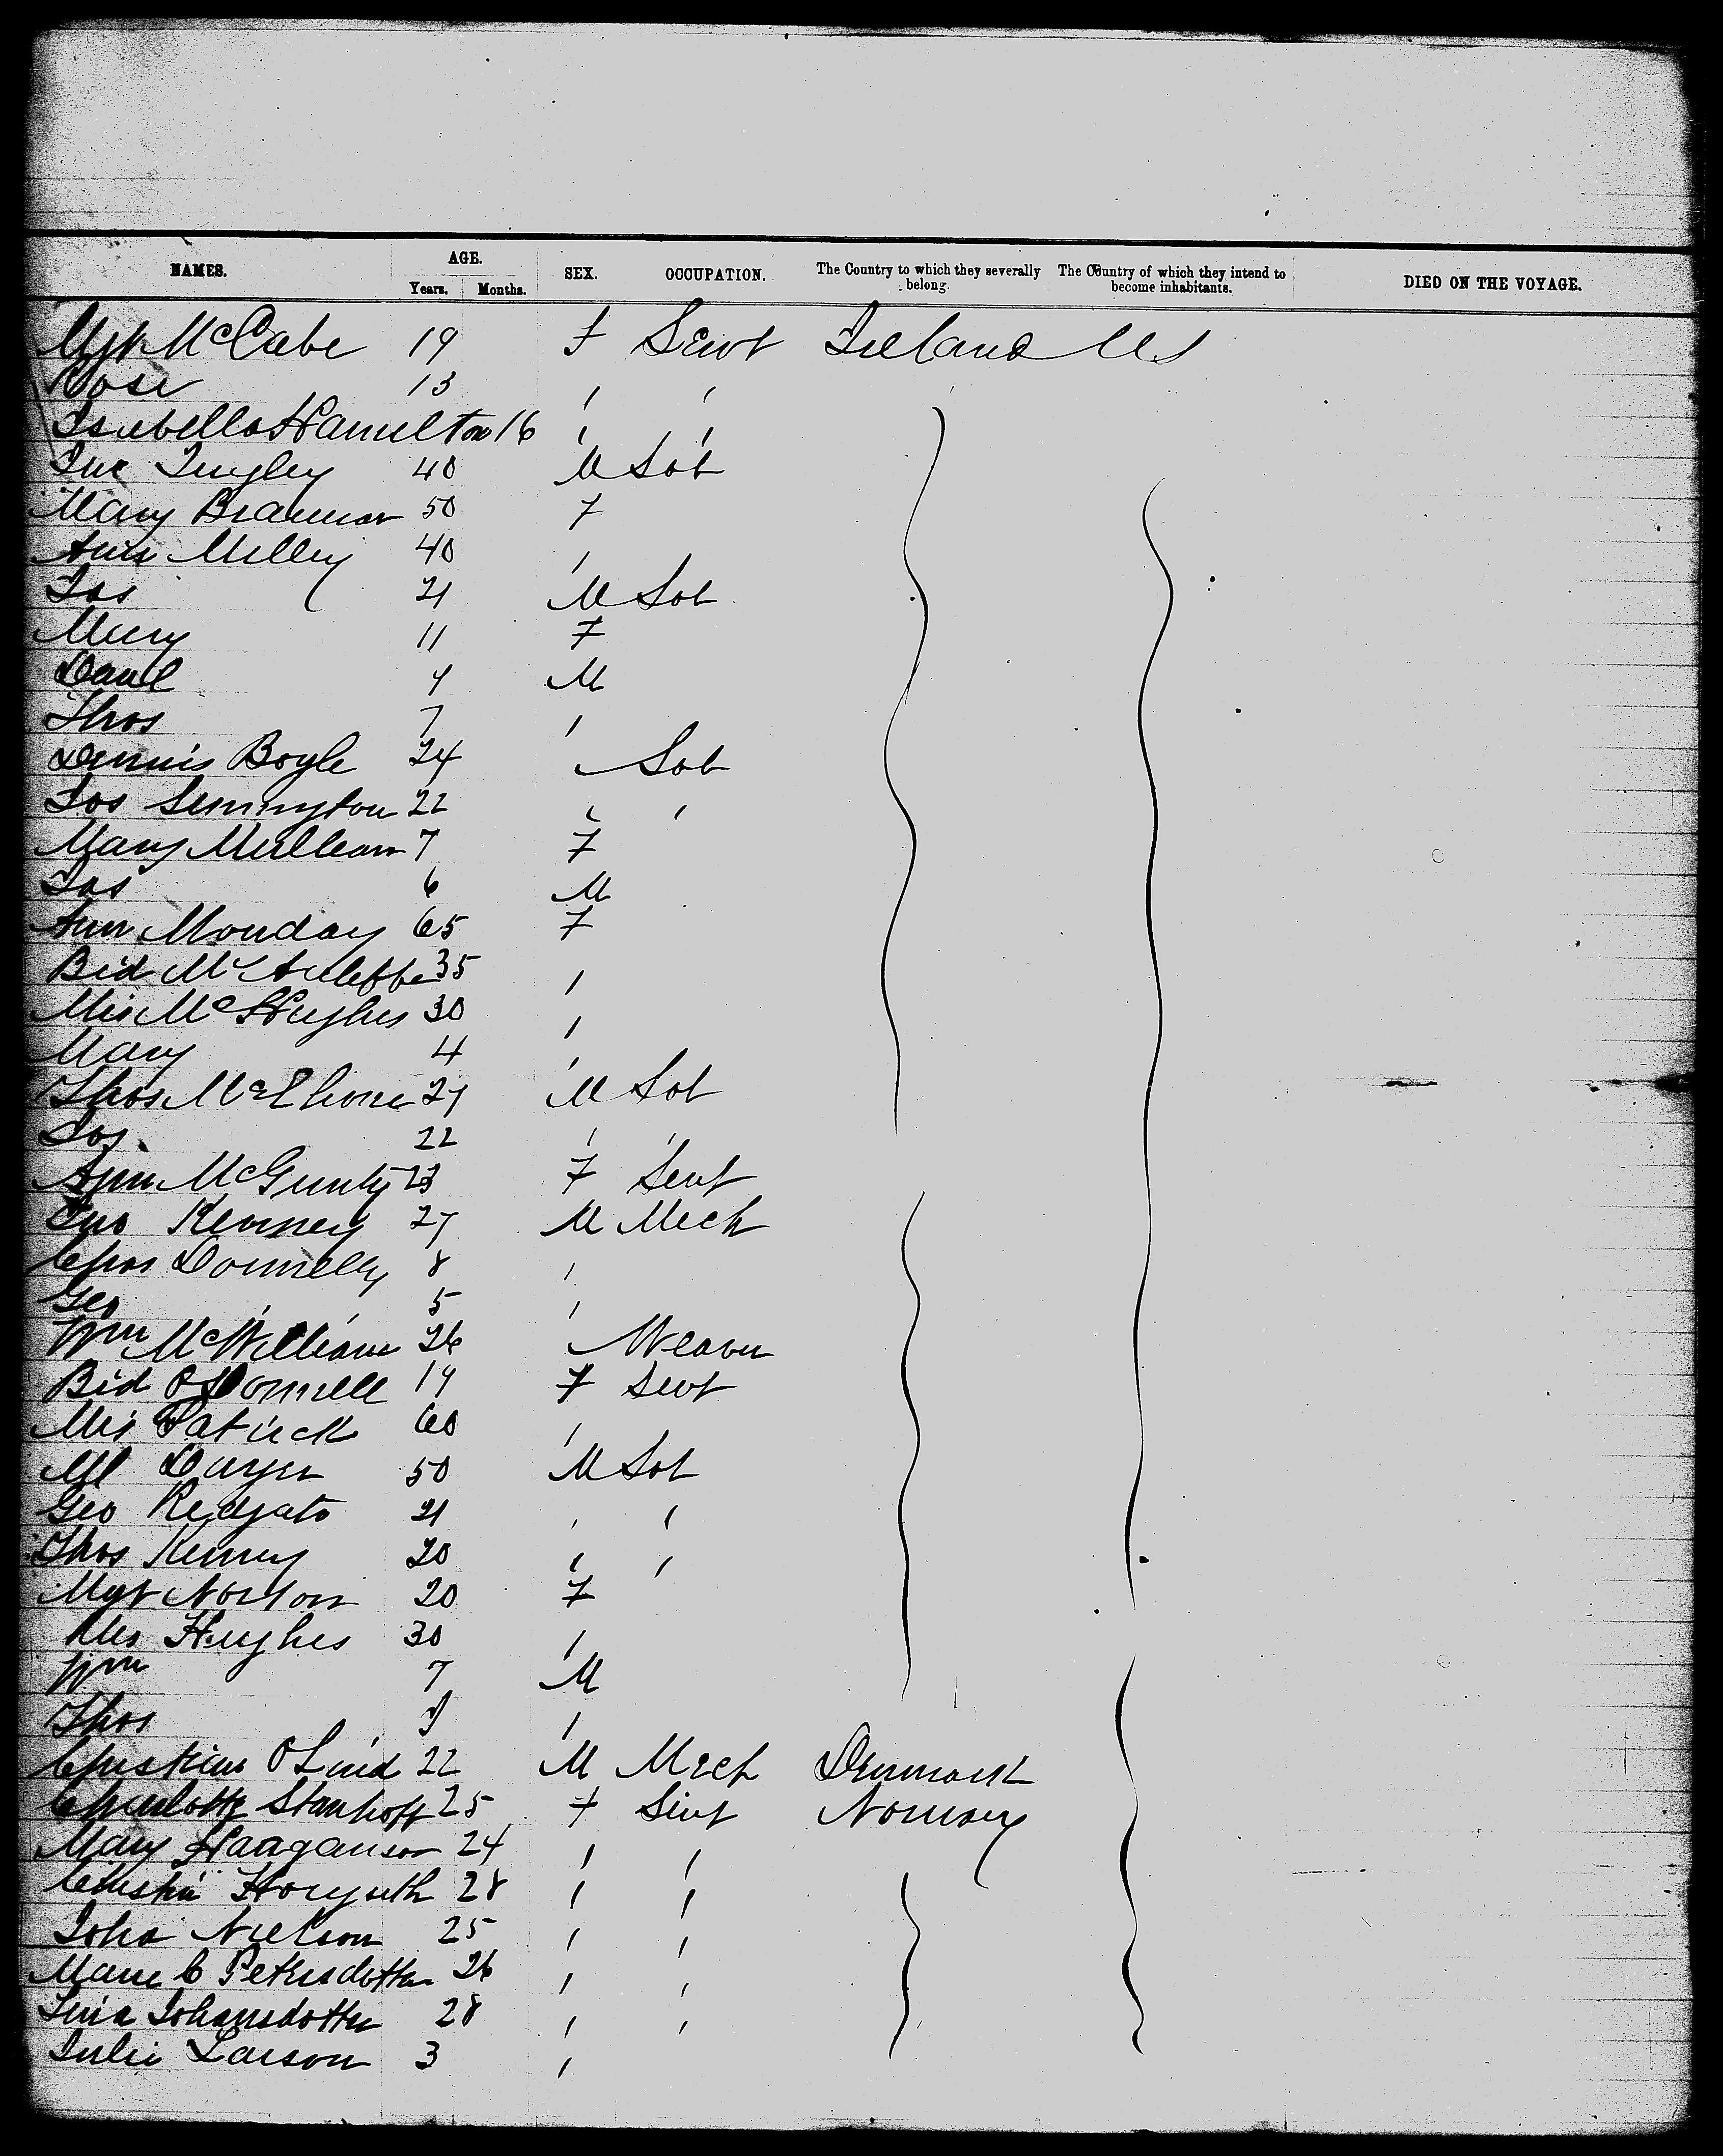 NAMES. AGE. SEX. OCCUPATION. The Country to which they severally belong. The Country of which they intend to become inhabitants. DIED ON THE VOYAGE.
Years. Months.
Mgt McCabe 19 F Servt Ireland US
Rose 13 " "
Isabella Hamilton 16 " "
Jno 40 M Lab
Mary Brannon 50 F
Ann Milley 40 "
Jas 21 M Lab
Mary 11 F
Danl 9 M
Thos 7 "
Dennis Boyle 24 " Lab
Jos 22 " "
Mary 7 F
Jas 6 M
Ann Monday 65 F
Bid McAuleffe 35 "
Mrs McHughes 30 "
Mary 4 "
Thos McElhone 27 M Lab
Jos 22 " "
Ann McGunty 23 F Servt
Jno Kenney 27 M Mech
Chas Donnelly 8 "
Geo 5 "
Wm McWilliams 26 " Weaver
Bid O'Donnell 19 F Servt
Mrs Patrick 60 "
Ml Dwyer 50 M Lab
Geo Redgate 21 " "
Thos Kenney 20 " "
Mgt Norton 20 F
Mrs Hughes 30 "
Wm 7 M
Thos "
Christian O Lind 22 M Mech Denmark
Charlotte Stanhoff 25 F Servt Norway
Mary Haagansen 24 " "
28 " "
Joha Nielson 25 " "
Marie C Petersdotter 26 " "
Lina Johansdotter 28 " "
Julie Larson 3 "